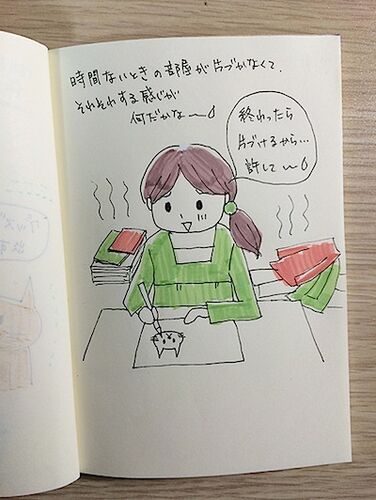 時間ないときの部屋が片づかなくて、
それそれする感じが
何だかな〜
終わったら
片づけるから…
許して〜